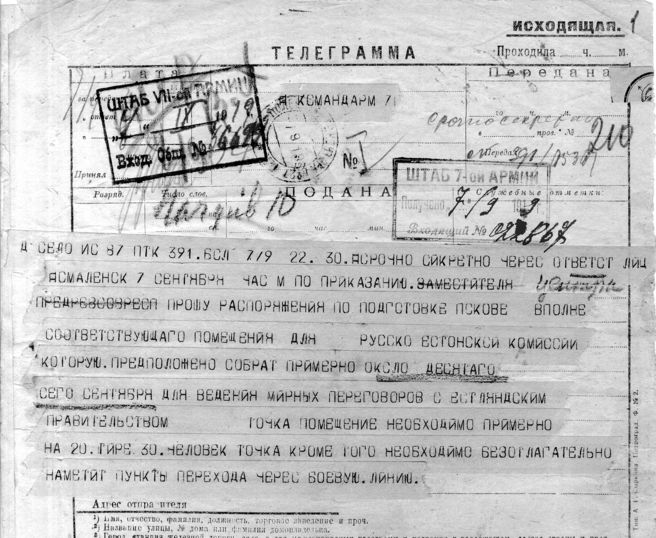 ИСХОДЯЩАЯ. 1
ТЕЛЕГРАММА
Проходила ч. м.
Плата Передана
ШТАБ VII-ой АРМИИ
IX 1919
Вход. Общ. №
КОМАНДАРМ 7
№ 1
210
Передал
Принял
ШТАБ 7-ой АРМИИ
Разряд. Число слов. ПОДАНА Служебные отметки.
Получено 7/9 1919
Входящий № 022867
Начдив 10
час. мин.
Д СЕЛО ИС 87 ПТК 391.БСЛ 7/9 22. 30.АСРОЧНО СИКРЕТНО ЧЕРЕС ОТВЕТСТ ЛИЦ
ЯСМАЛЕНСК 7 СЕНТЯБРЯ ЧАС М ПО ПРИКАЗАНИЮ.ЗАМЕСТИТЕЛЯ
ПРЕДРЕВСОВРЕСП ПРОШУ РАСПОРЯЖЕНИЯ ПО ПОДГОТОВКЕ ПСКОВЕ ВПОЛНЕ
СООТВЕТСТВУЮЩАГО ПОМЕЩЕНИЯ ДЛЯ РУССКО ЕСТОНСКОЙ КОМИССИИ
КОТОРУЮ.ПРЕДПОЛОЖЕНО СОБРАТ ПРИМЕРНО ОКОЛО ДЕСЯТАГО
СЕГО СЕНТЯБРЯ ДЛЯ ВЕДЕНИЯ МИРНЫХ ПЕРЕГОВОРОВ С ЕСТЛЯНДСКИМ
ПРАВИТЕЛЬСТВОМ ТОЧКА ПОМЕЩЕНИЕ НЕОБХОДИМО ПРИМЕРНО
НА 20.ТИРЕ.30.ЧЕЛОВЕК ТОЧКА КРОМЕ ТОГО НЕОБХОДИМО БЕЗОТЛАГАТЕЛЬНО
НАМЕТИТ ПУНКТЫ ПЕРЕХОДА ЧЕРЕС БОЕВУЮ.ЛИНИЮ.
Адрес отправителя
1) Имя, отчество, фамилия, должность, торговое заведение и проч.
2) Название улицы, № дома или фамилия домовладельца.